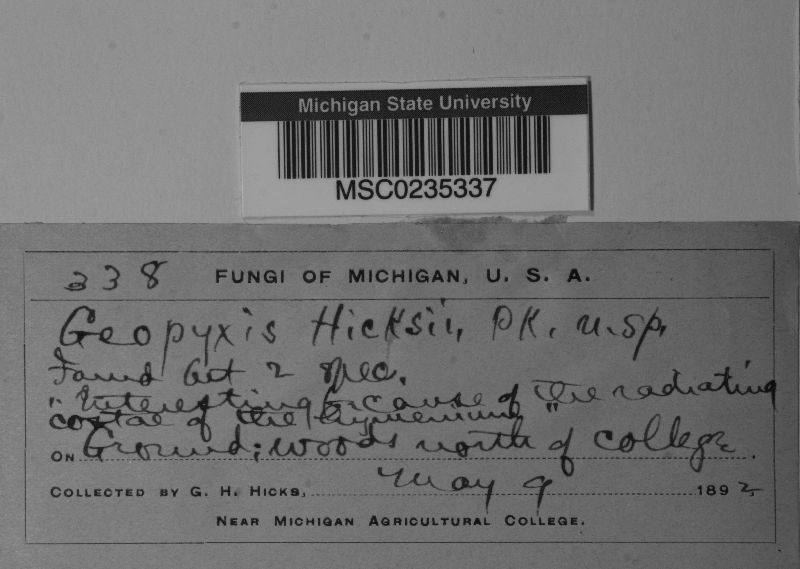 Michigan State University
MSC0235337
338 FUNGI OF MICHIGAN, U. S. A.
Geopyxis Hicksii, PK. n.sp.
Found but 2 spec.
"Interesting because of the radiating
costae of the hymenium"
ON Ground; woods north of college.
COLLECTED BY G. H. HICKS, May 9 1892
NEAR MICHIGAN AGRICULTURAL COLLEGE.